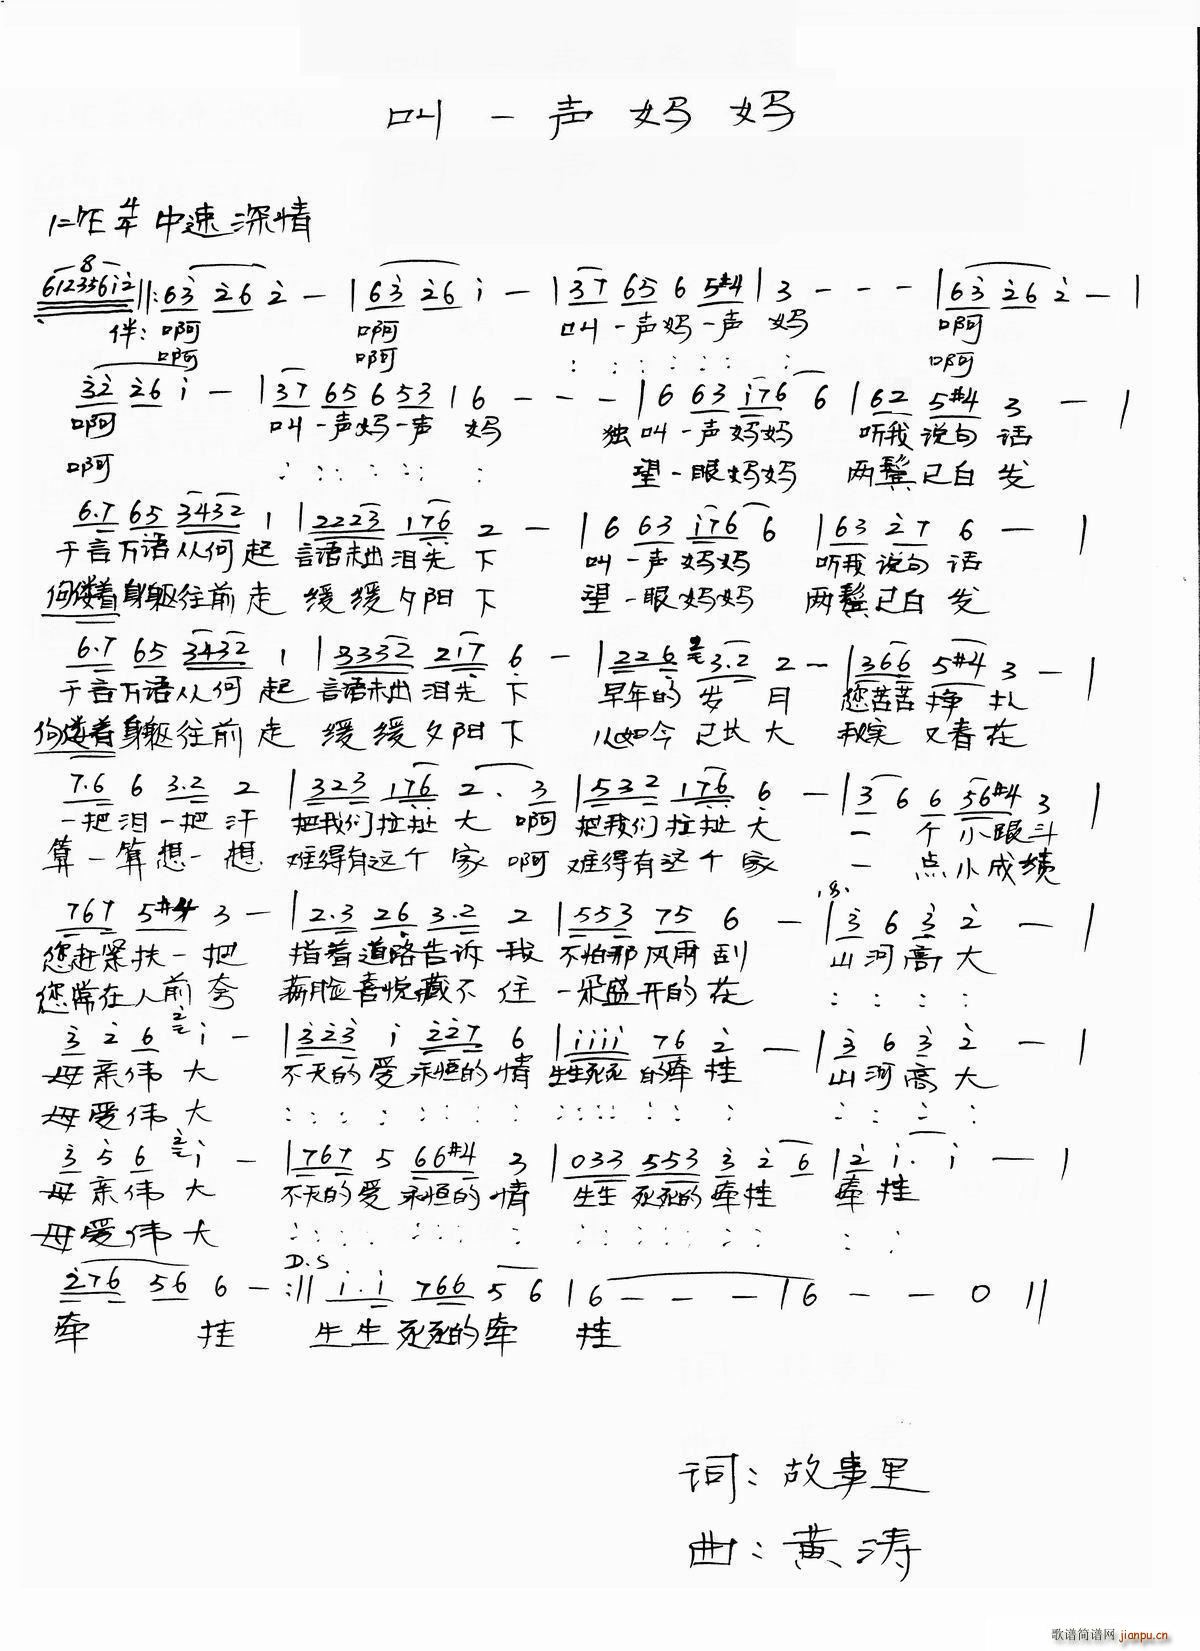 叫一声妈妈
1=♭E 4/4 中速 深情
612356i2 ||: 63 26 2 - | 63 26 i - | 37 65 6 5#4 | 3 - - - | 63 26 2 - |
伴: 啊 啊 叫一声妈一声 妈 啊
啊 啊 : : : : : : : 啊
32 26 i - | 37 65 6 53 | 6 - - - | 6 63 i76 6 | 62 5#4 3 - |
啊 叫一声妈一声 妈 独 叫一声妈妈 听我说句话
啊 : : : : : : : 望一眼妈妈 两鬓已白发
6.7 65 3432 1 | 2223 176 2 - | 6 63 i76 6 | 63 27 6 - |
千言万语从何起 言语未出泪先下 叫一声妈妈 听我说句话
佝偻着身躯往前走 缓缓夕阳下 望一眼妈妈 两鬓已白发
6.7 65 3432 1 | 3332 217 6 - | 226 3.2 2 - | 366 5#4 3 - |
千言万语从何起 言语未出泪先下 早年的岁月 您苦苦挣扎
佝偻着身躯往前走 缓缓夕阳下 从如今已长大 我家又春在
7.6 6 3.2 2 | 323 176 2. 3 | 532 176 6 - | 3 6 6 56#4 3 |
一把泪一把汗 把我们拉扯大 啊 把我们拉扯大 一个小跟斗
算一算想一想 难得有这个家 啊 难得有这个家 一点小成绩
767 5#4 3 - | 2.3 26 3.2 2 | 553 75 6 - | 3 6 3 2 - |
您赶紧扶一把 指着道路告诉我 不怕那风雨刮 山河高大
您常在人前夸 满脸喜悦藏不住 一朵盛开的花 : : : :
3 2 6 i - | 323 i 227 6 | iiii 76 2 - | 3 6 3 2 - |
母亲伟大 不灭的爱永恒的情 生生死死的牵挂 山河高大
母爱伟大 : : : : : : : : : : : : : : : : : : :
3 5 6 i - | 767 5 66#4 3 | 033 553 3 2 6 | 2 i. i - |
母亲伟大 不灭的爱永恒的情 生生死死的牵挂 牵挂
母爱伟大 : : : : : : : : : : : : : : : : :
D.S
276 56 6 - :|| i.i 766 5 6 | 6 - - - | 6 - - 0 ||
牵 挂 生生死死的牵 挂
词: 故事里
曲: 黄涛
歌谱简谱网
jianpu.cn